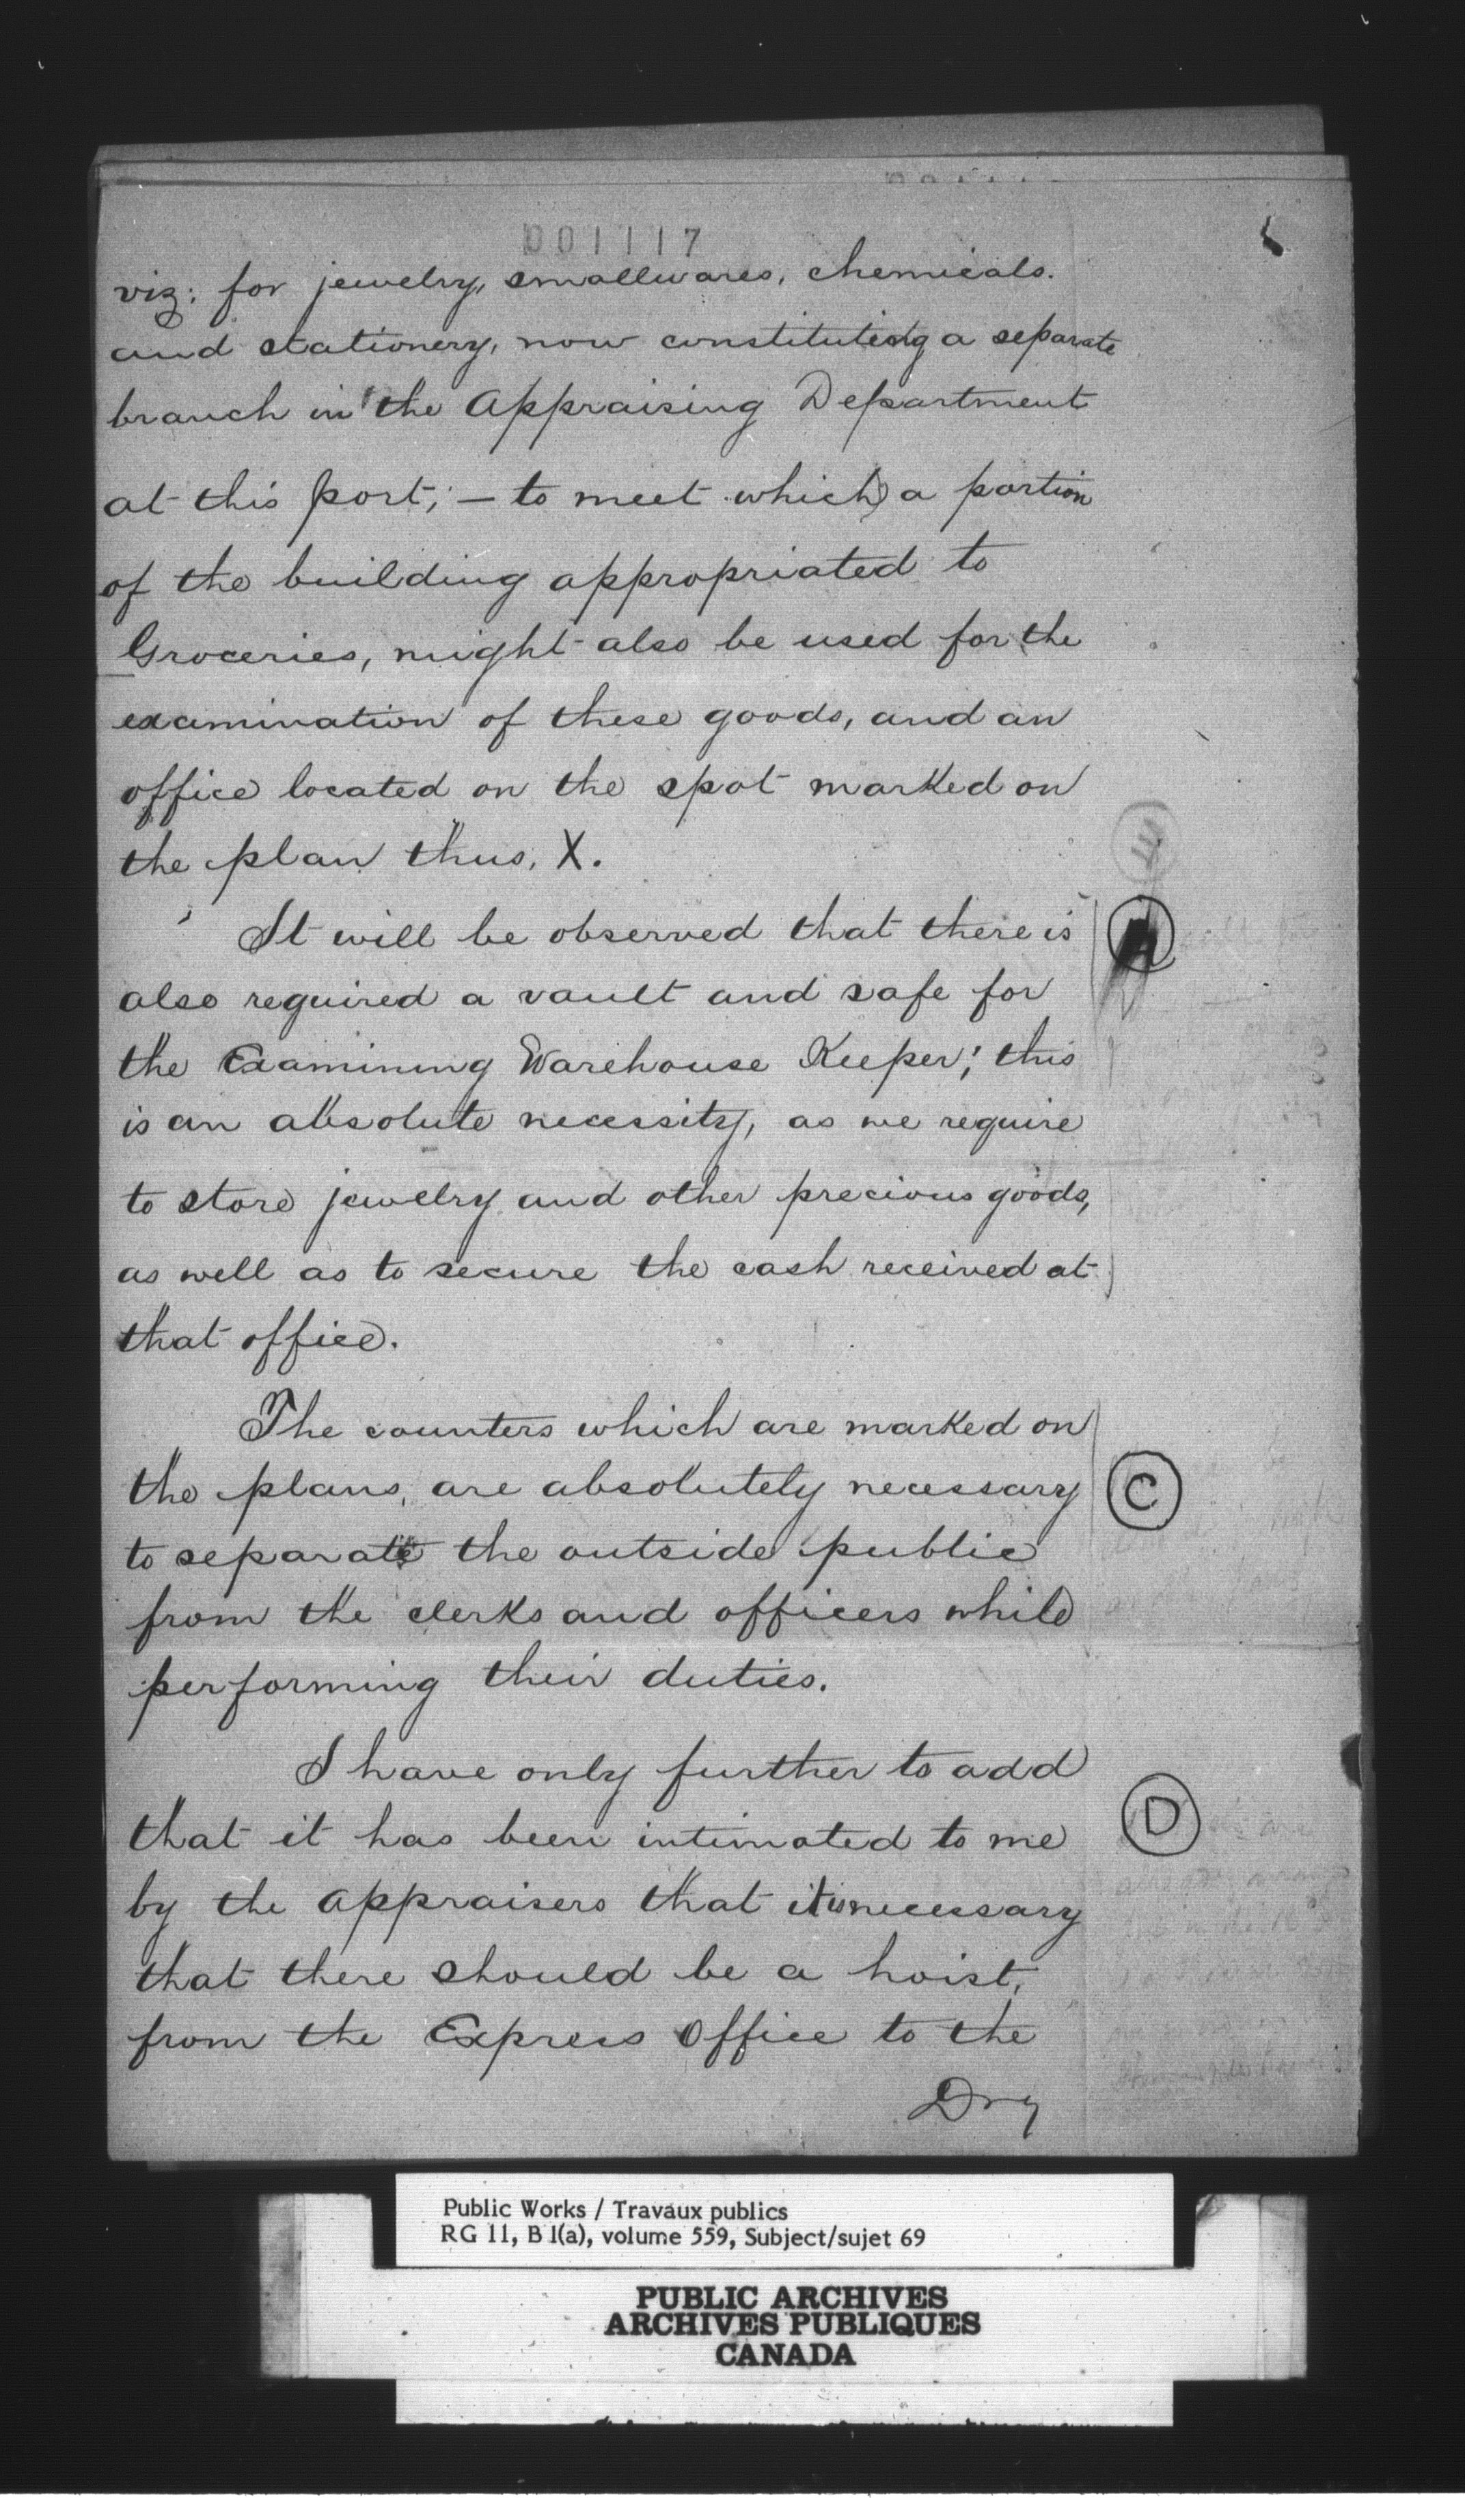 001117
viz: for jewelry, smallwares, chemicals.
and stationery, now constituting a separate
branch in the Appraising Department
at this port; — to meet which a portion
of the building appropriated to
Groceries, might also be used for the
examination of these goods, and an
office located on the spot marked on
the plan thus, X.
It will be observed that there is
A
also required a vault and safe for
the Examining Warehouse Keeper; this
is an absolute necessity, as we require
to store jewelry and other precious goods,
as well as to secure the cash received at
that office.
The counters which are marked on
the plans, are absolutely necessary
C
to separate the outside public
from the clerks and officers while
performing their duties.
I have only further to add
D
that it has been intimated to me
by the appraisers that it is necessary
that there should be a hoist,
from the Express Office to the
Dry
Public Works / Travaux publics
RG 11, B 1(a), volume 559, Subject/sujet 69
PUBLIC ARCHIVES
ARCHIVES PUBLIQUES
CANADA